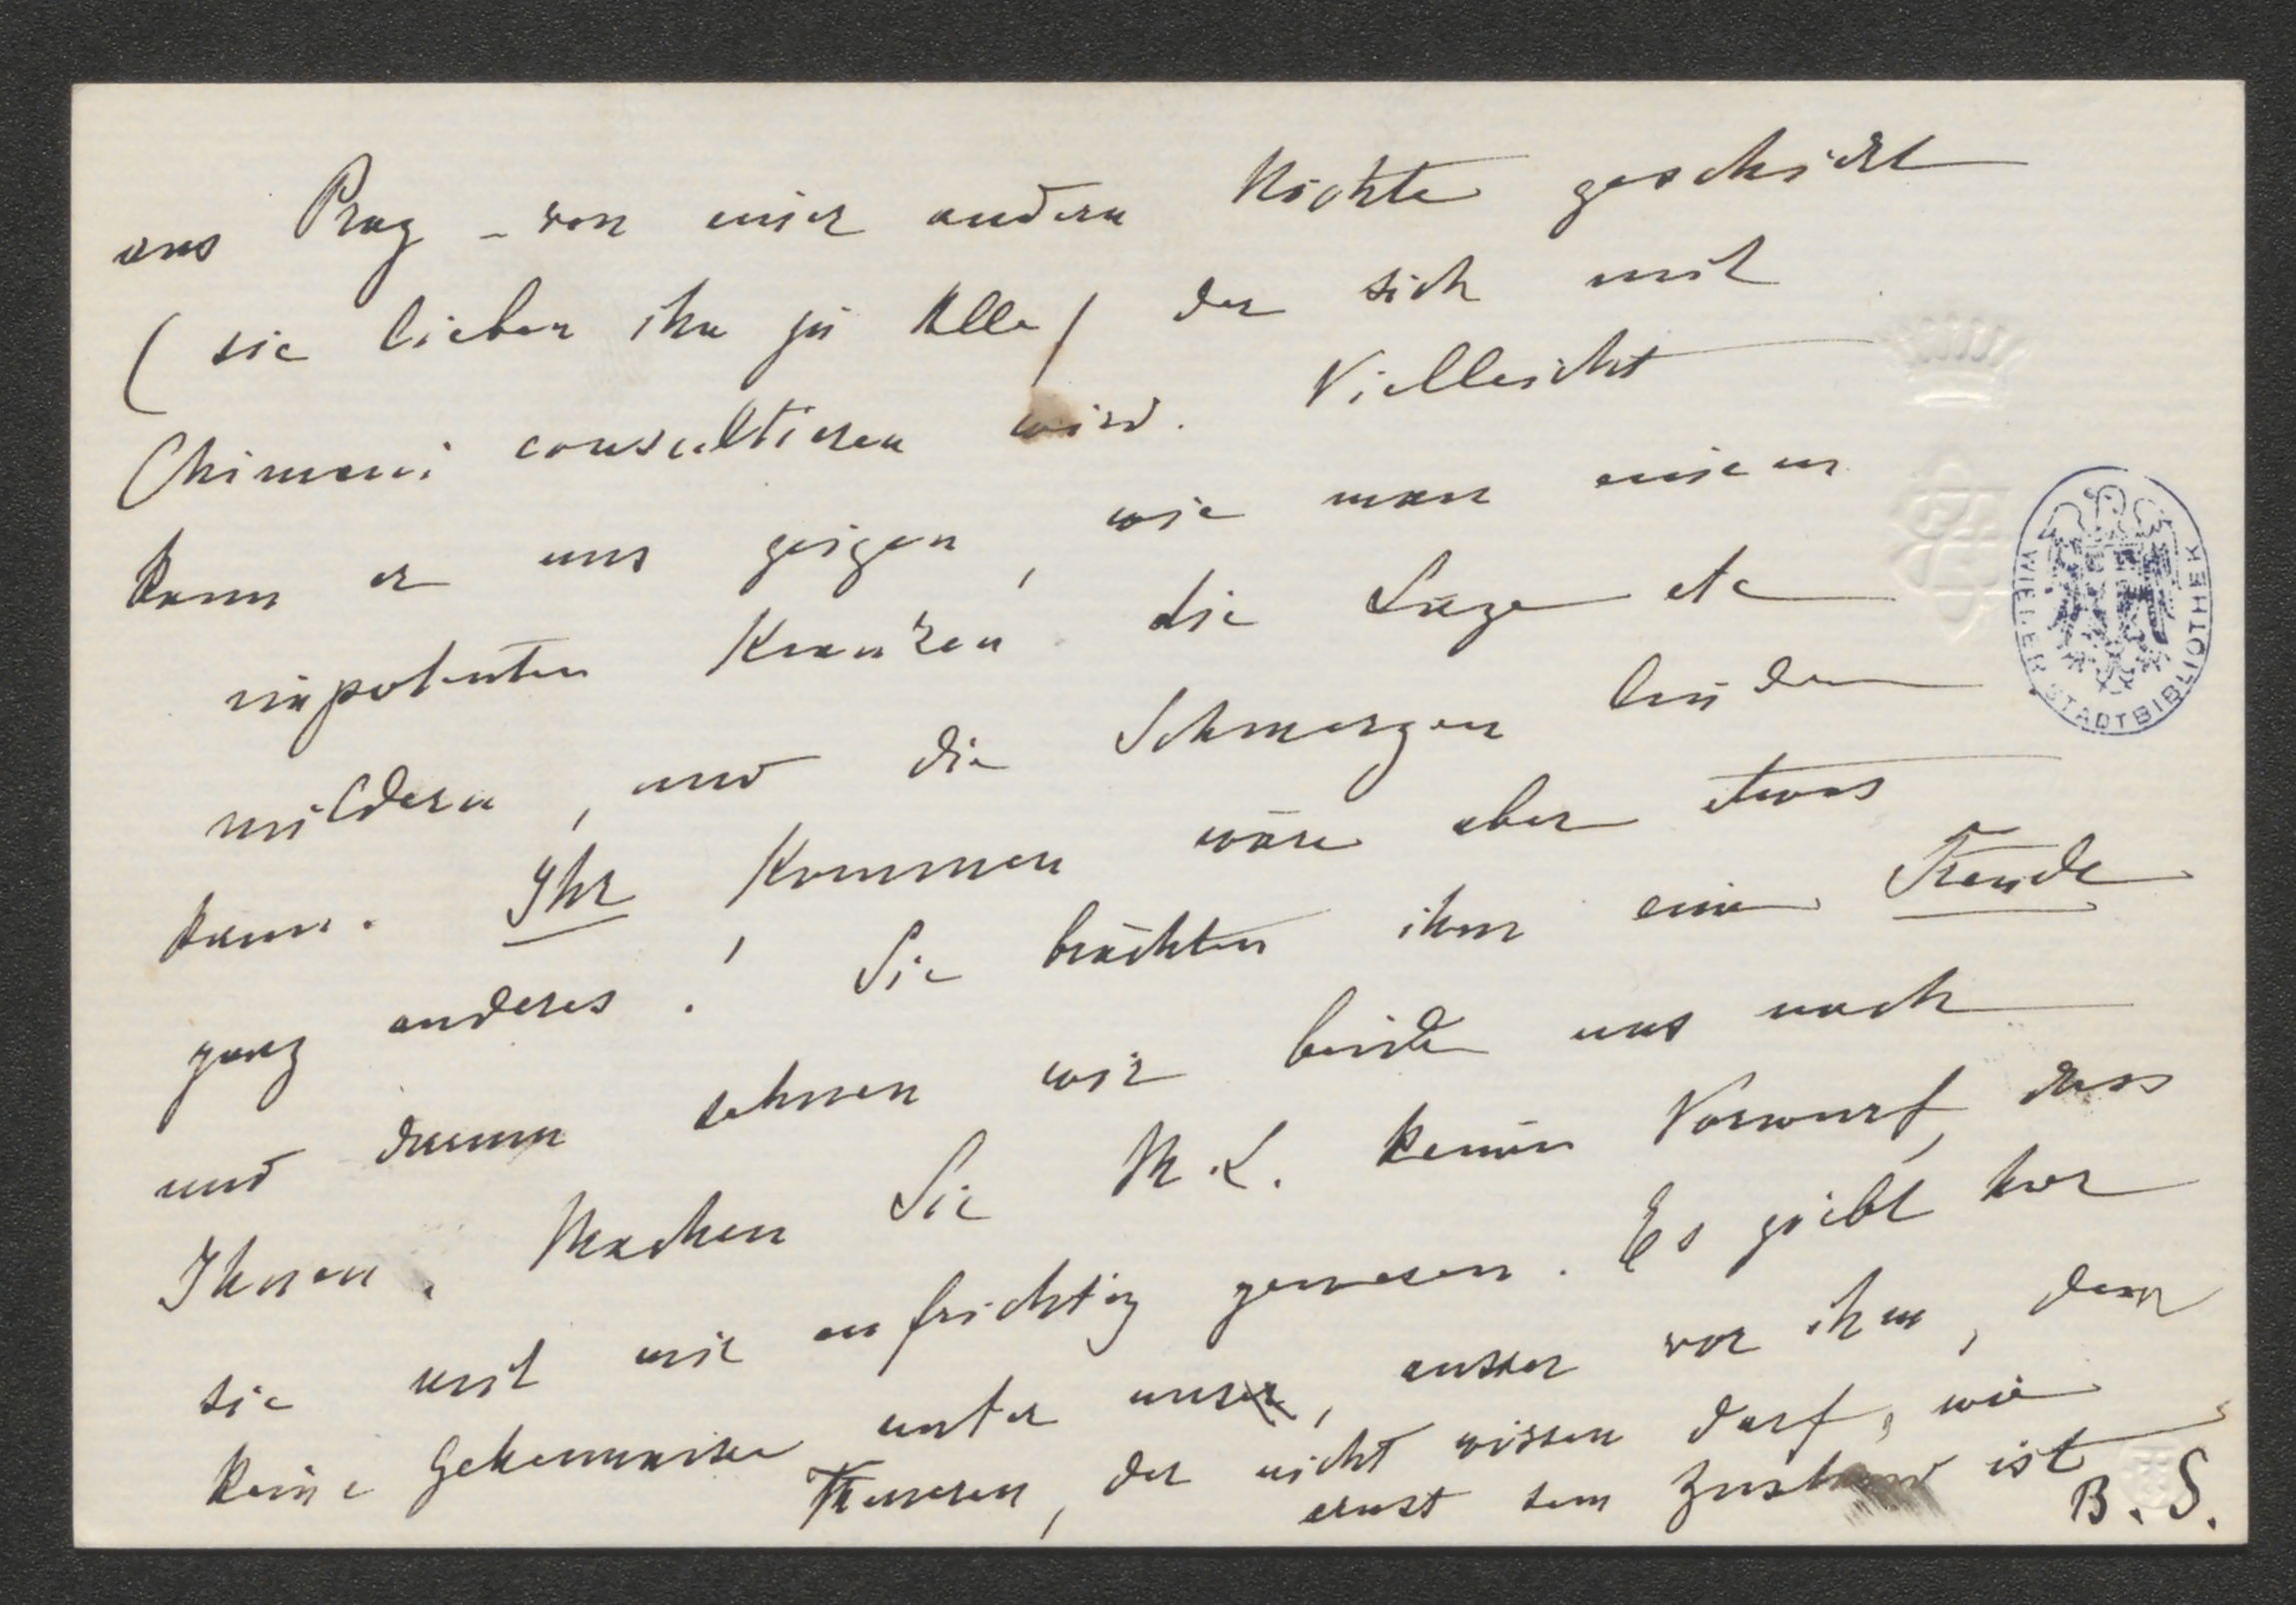 aus Prag – von einer andern Nichte geschickt
(sie lieben ihn ja Alle) der sich mit
Chimani consultieren wird. Vielleicht
kann er uns zeigen, wie man einem
impotenten Kranken die Lage etc
mildern, und die Schmerzen lindern
kann. Ihr Kommen wäre aber etwas
ganz anderes! Sie brächten ihm eine Freude
und darum sehnen wir beide uns nach
Ihnen. Machen Sie M. L. keinen Vorwurf, dass
sie mit mir aufrichtig gewesen. Es giebt hier
keine Geheimnisse unter uns, ausser vor ihm, dem
Theueren, der nicht wissen darf, wie
ernst sein Zustand ist
B. S.
WIENER STADTBIBLIOTHEK